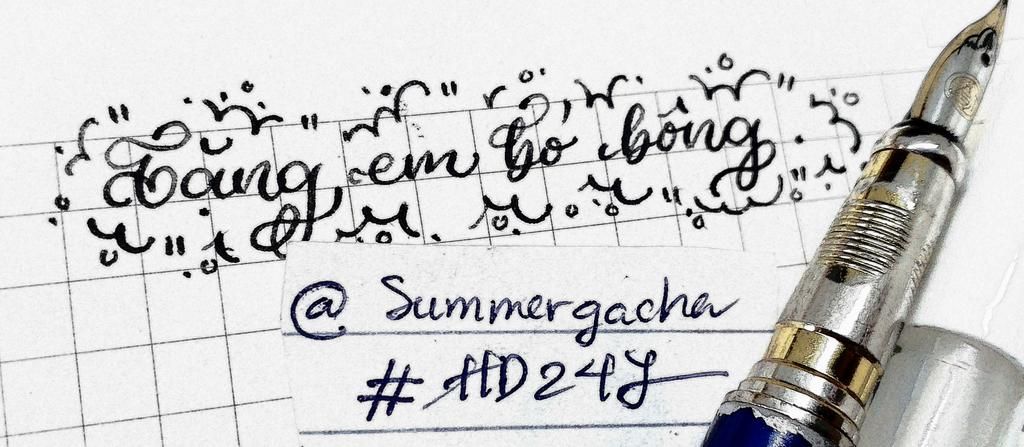 Tặng em bó bông
@ Summergacha
# HD24Y